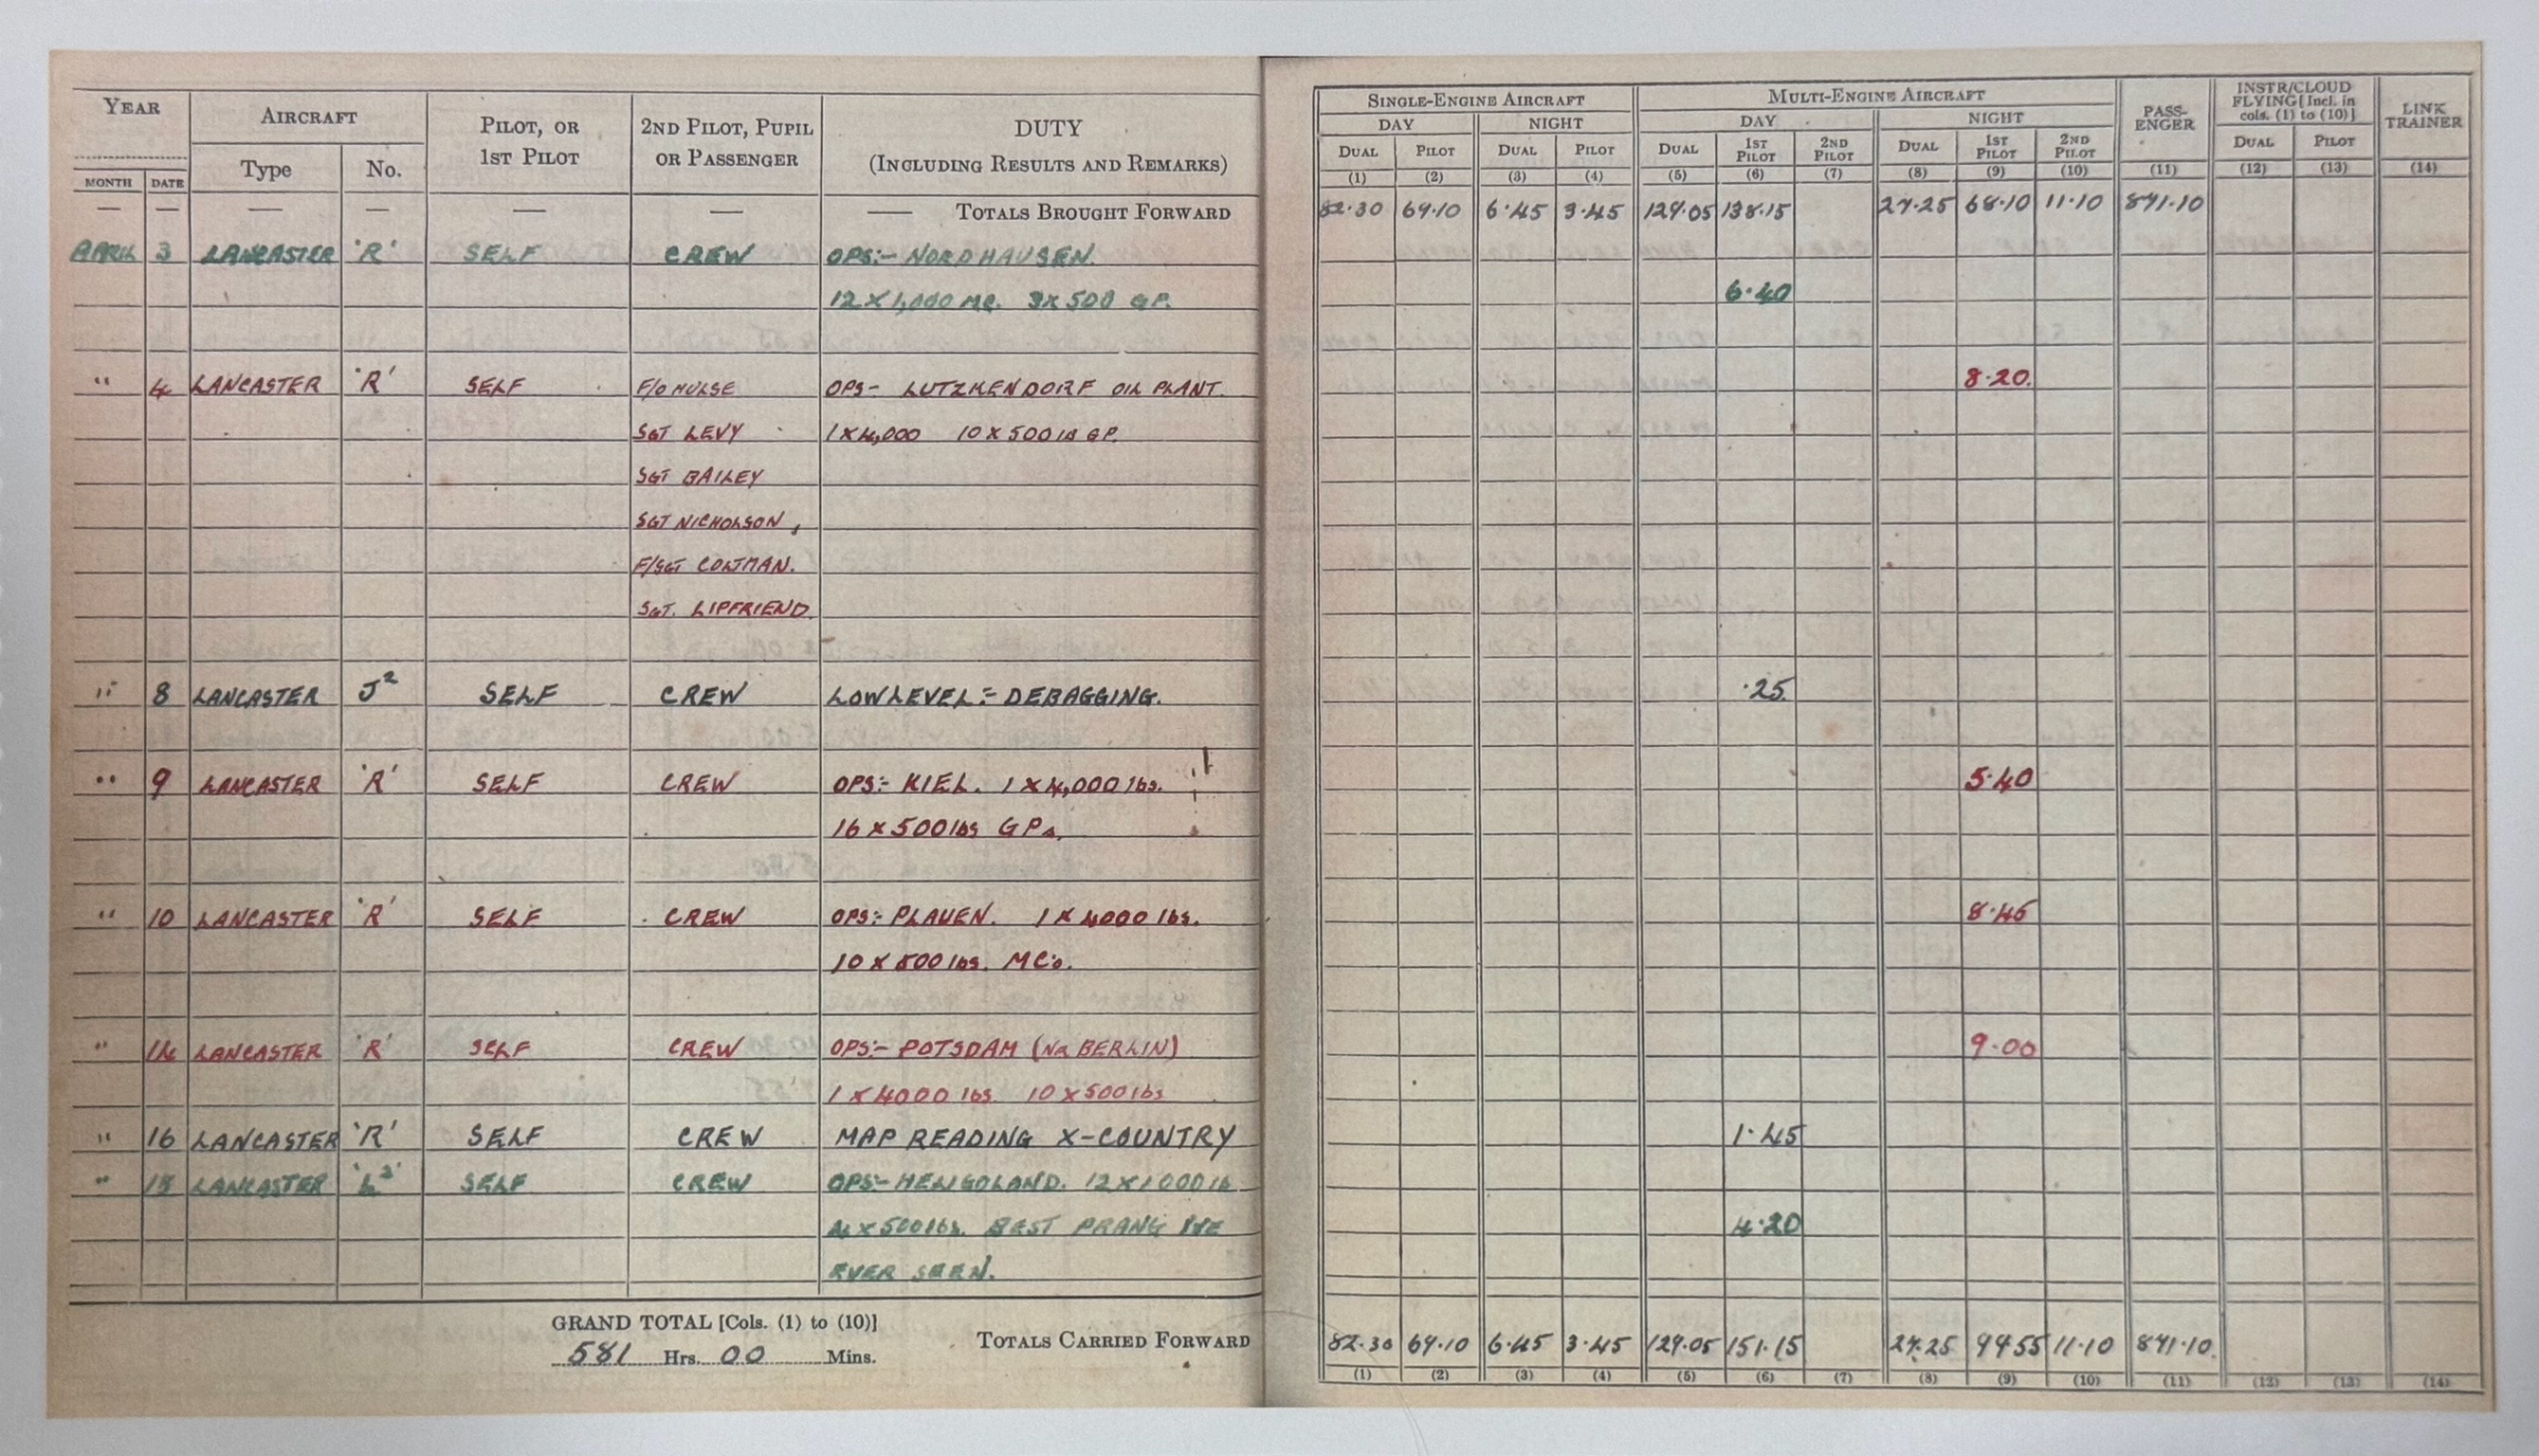 YEAR AIRCRAFT PILOT, OR 1ST PILOT 2ND PILOT, PUPIL OR PASSENGER DUTY (INCLUDING RESULTS AND REMARKS)
MONTH DATE Type No.
— — — — — — — TOTALS BROUGHT FORWARD
APRIL 3 LANCASTER 'R' SELF CREW OPS:- NORDHAUSEN.
12 X 1,000 MC. 3 X 500 GP.
" 4 LANCASTER 'R' SELF F/O HULSE OPS- LUTZKENDORF OIL PLANT.
SGT LEVY 1 X 4,000 10 X 500 lb GP.
SGT BAILEY
SGT NICHOLSON,
F/SGT COLTMAN.
SGT. LIPFRIEND.
" 8 LANCASTER J² SELF CREW LOW LEVEL:- DEBAGGING.
" 9 LANCASTER 'R' SELF CREW OPS:- KIEL. 1 X 4,000 lbs.
16 X 500 lbs GPs.
" 10 LANCASTER 'R' SELF CREW OPS:- PLAUEN. 1 X 4000 lbs.
10 X 500 lbs. MC's.
" 14 LANCASTER 'R' SELF CREW OPS:- POTSDAM (Nr BERLIN)
1 X 4000 lbs. 10 X 500 lbs
" 16 LANCASTER 'R' SELF CREW MAP READING X-COUNTRY
" 18 LANCASTER 'L²' SELF CREW OPS:- HELIGOLAND. 12 X 1000 lb
4 X 500 lbs. BEST PRANG I'VE
EVER SEEN.
GRAND TOTAL [Cols. (1) to (10)]
581 Hrs. 00 Mins.
TOTALS CARRIED FORWARD
SINGLE-ENGINE AIRCRAFT MULTI-ENGINE AIRCRAFT PASS-ENGER INSTR/CLOUD FLYING [Incl. in cols. (1) to (10)] LINK TRAINER
DAY NIGHT DAY NIGHT
DUAL PILOT DUAL PILOT DUAL 1ST PILOT 2ND PILOT DUAL 1ST PILOT 2ND PILOT DUAL PILOT
(1) (2) (3) (4) (5) (6) (7) (8) (9) (10) (11) (12) (13) (14)
82.30 69.10 6.45 3.45 129.05 138.15 27.25 68.10 11.10
6.40
8.20.
.25.
5.40
8.45
9.00
1.45
4.20
82.30 69.10 6.45 3.45 129.05 151.15 27.25 99 55 11.10
(1) (2) (3) (4) (5) (6) (7) (8) (9) (10) (11) (12) (13) (14)